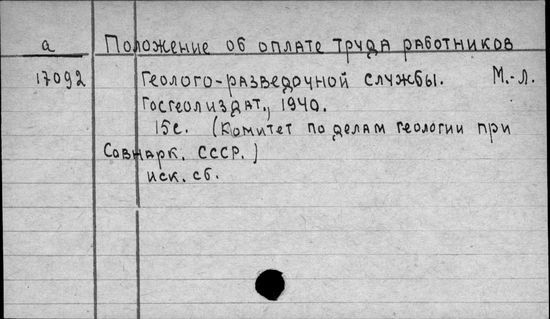 а Положение об оплате труда работников
17092 геолого-разведочной службы. М.-Л.
Госгеолиздат., 1940.
15с. (Комитет по делам геологии при
Совнарк. СССР.)
иск. сб.